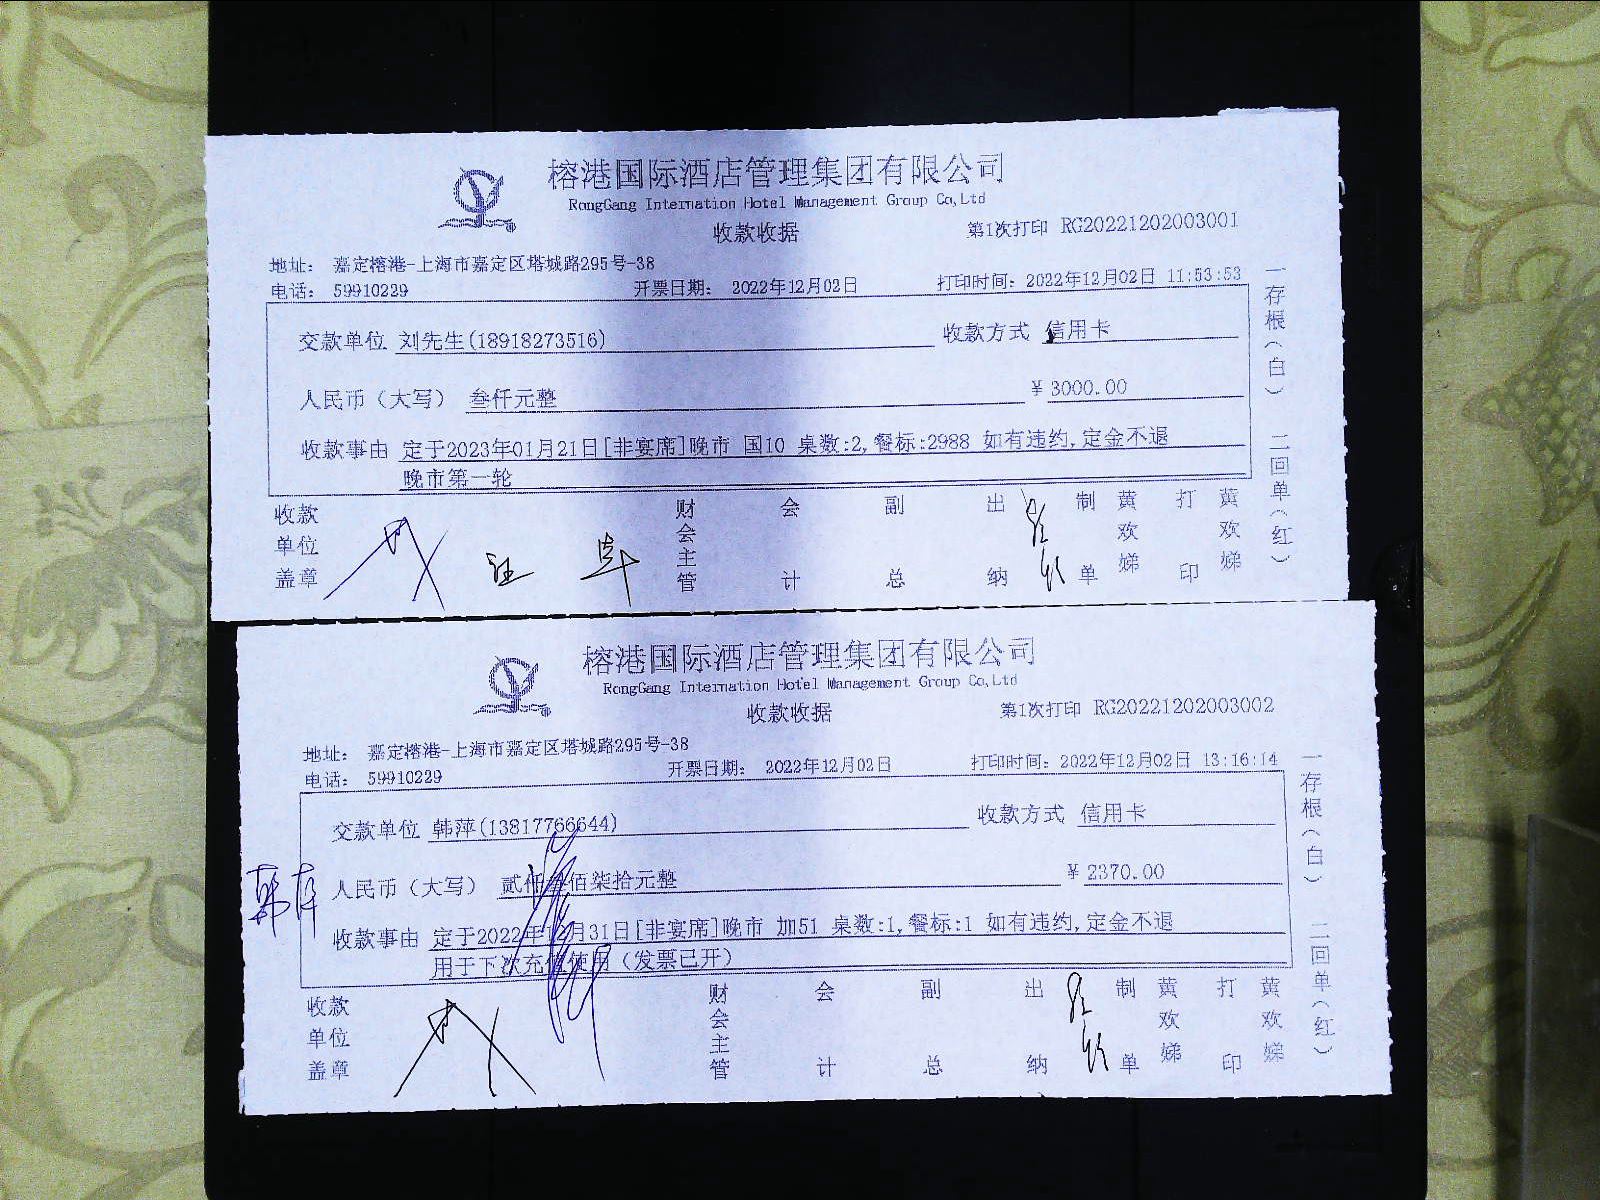 榕港国际酒店管理集团有限公司
RongGang Internation Hotel Management Group Co,Ltd
收款收据
第1次打印 RG20221202003001
地址： 嘉定榕港-上海市嘉定区塔城路295号-38
电话： 59910229 开票日期： 2022年12月02日 打印时间：2022年12月02日 11:53:53
交款单位 刘先生(18918273516) 收款方式 信用卡
人民币（大写） 叁仟元整 ￥3000.00
收款事由 定于2023年01月21日[非宴席]晚市 国10 桌数:2,餐标:2988 如有违约,定金不退
晚市第一轮
收款单位盖章 财会主管 会计 副总 出纳 制单 黄欢娣 打印 黄欢娣
一存根（白） 二回单（红）
榕港国际酒店管理集团有限公司
RongGang Internation Hotel Management Group Co,Ltd
收款收据
第1次打印 RG20221202003002
地址： 嘉定榕港-上海市嘉定区塔城路295号-38
电话： 59910229 开票日期： 2022年12月02日 打印时间：2022年12月02日 13:16:14
交款单位 韩萍(13817766644) 收款方式 信用卡
人民币（大写） 贰仟叁佰柒拾元整 ￥2370.00
收款事由 定于2022年12月31日[非宴席]晚市 加51 桌数:1,餐标:1 如有违约,定金不退
用于下次充值使用（发票已开）
收款单位盖章 财会主管 会计 副总 出纳 制单 黄欢娣 打印 黄欢娣
一存根（白） 二回单（红）